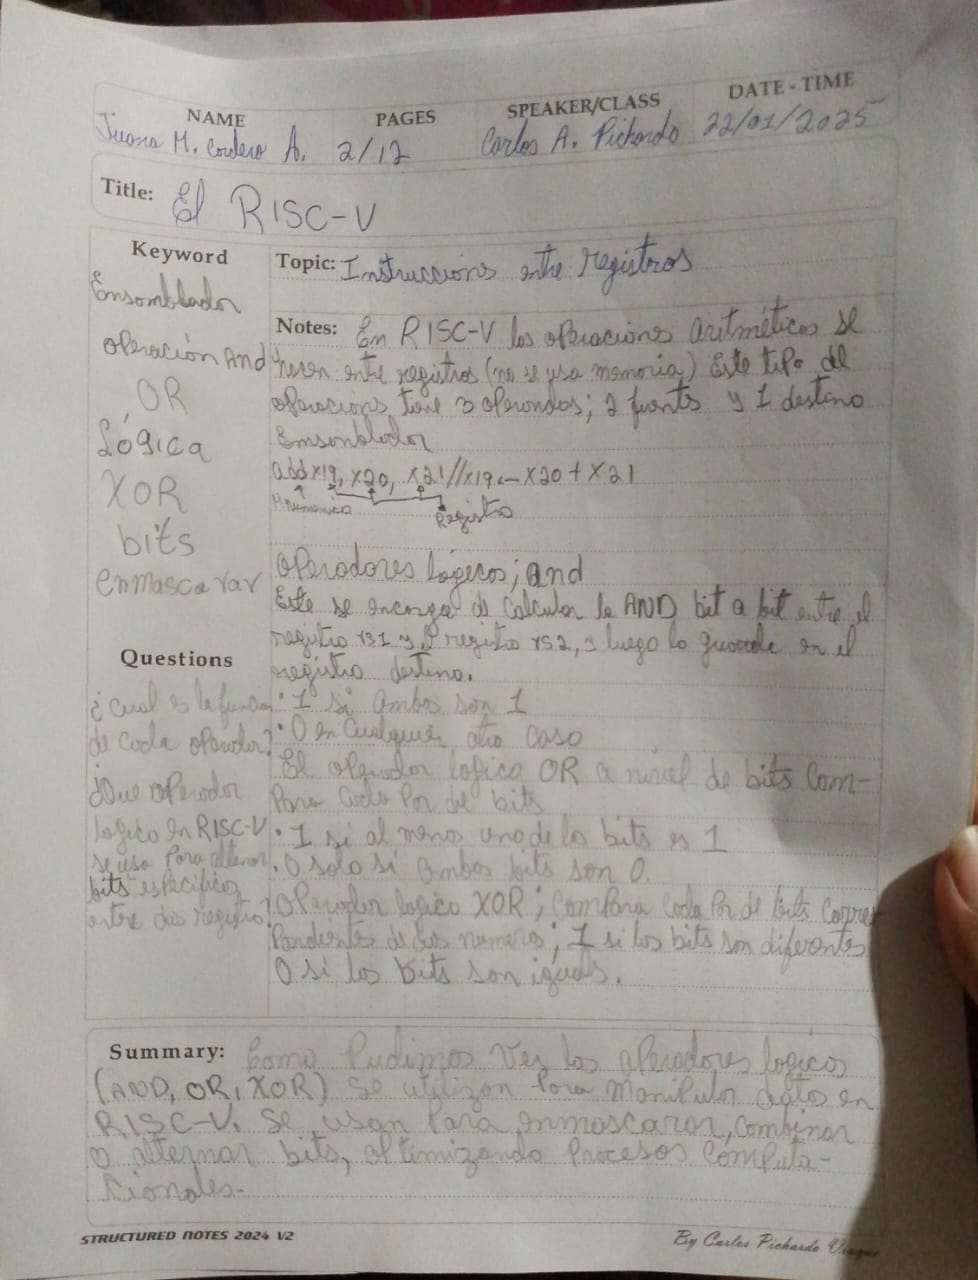 NAME PAGES SPEAKER/CLASS DATE - TIME
Juana M. Cordero A. 2/12 Carlos A. Pichardo 22/01/2025
Title: El RISC-V
Keyword
Ensamblador
operación And
OR
Lógica
XOR
bits
enmascarar
Questions
¿cual es la función
de cada operador?
¿Que operador
logico en RISC-V
se usa para alternar
bits especificos
entre dos registro?
Topic: Instruccions entre registros
Notes: En RISC-V las operaciones aritméticas se
hacen entre registros (no se usa memoria) Este tipo de
operacions tiene 3 operandos; 2 fuentes y 1 destino
Ensamblador
add x19, x20, x21 // x19 <- x20 + x21
Mnemonico Registro
Operadores lógicos; and
Este se encarga de calcular la AND bit a bit entre el
registro rs1 y el registro rs2, y luego lo guarda en el
registro destino.
• 1 si ambos son 1
• 0 en cualquier otro caso
El operador logico OR a nivel de bits com-
para cada par de bits
• 1 si al meno uno de los bits es 1
• 0 solo si ambos bits son 0.
Operador logico XOR; compara cada par de bits corres
pondientes de dos numeros; 1 si los bits son diferentes
0 si los bits son iguals.
Summary: Como pudimos ver los operadores logicos
(AND, OR, XOR) se utilizan para manipular datos en
RISC-V. Se usan para enmascarar, combinar
o alternar bits, optimizando procesos computa-
cionales.
STRUCTURED NOTES 2024 V2
By Carlos Pichardo Viuque